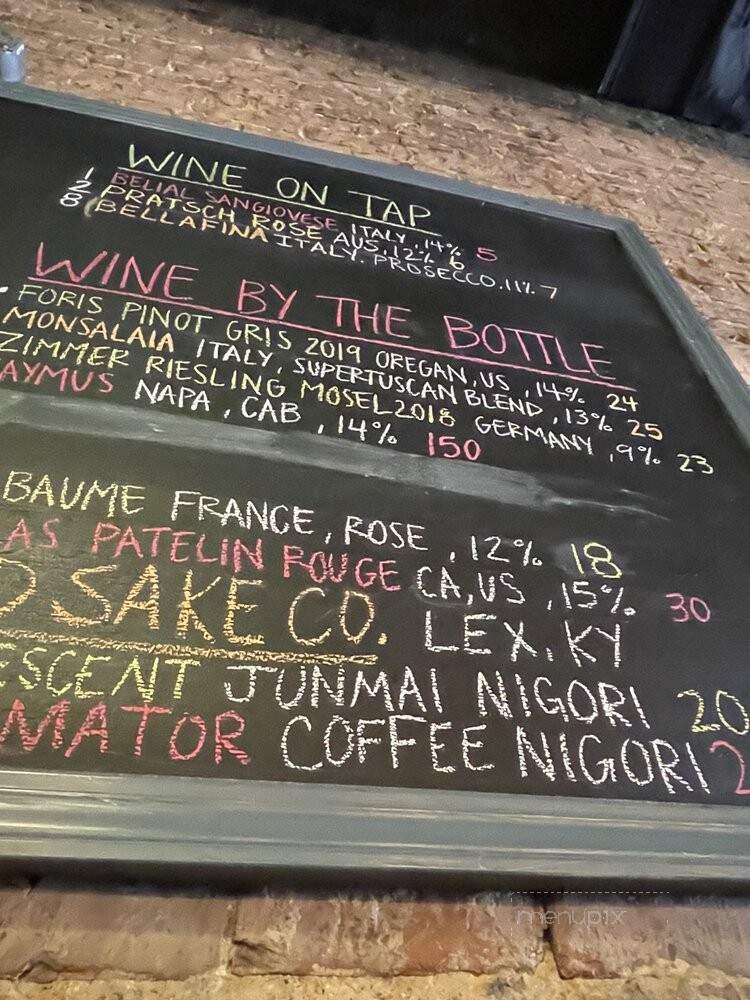 WINE ON TAP
1 BELIAL SANGIOVESE ITALY, 14% 5
2 PRATSCH ROSE AUS, 12% 6
8 BELLAFINA ITALY. PROSECCO. 11% 7
WINE BY THE BOTTLE
FORIS PINOT GRIS 2019 OREGAN, US, 14% 24
MONSALAIA ITALY, SUPERTUSCAN BLEND, 13% 25
ZIMMER RIESLING MOSEL 2018 GERMANY, 9% 23
AYMUS NAPA, CAB, 14% 150
BAUME FRANCE, ROSE, 12% 18
AS PATELIN ROUGE CA, US, 15% 30
SAKE CO. LEX, KY
ESCENT JUNMAI NIGORI 20
MATOR COFFEE NIGORI 2
menupix